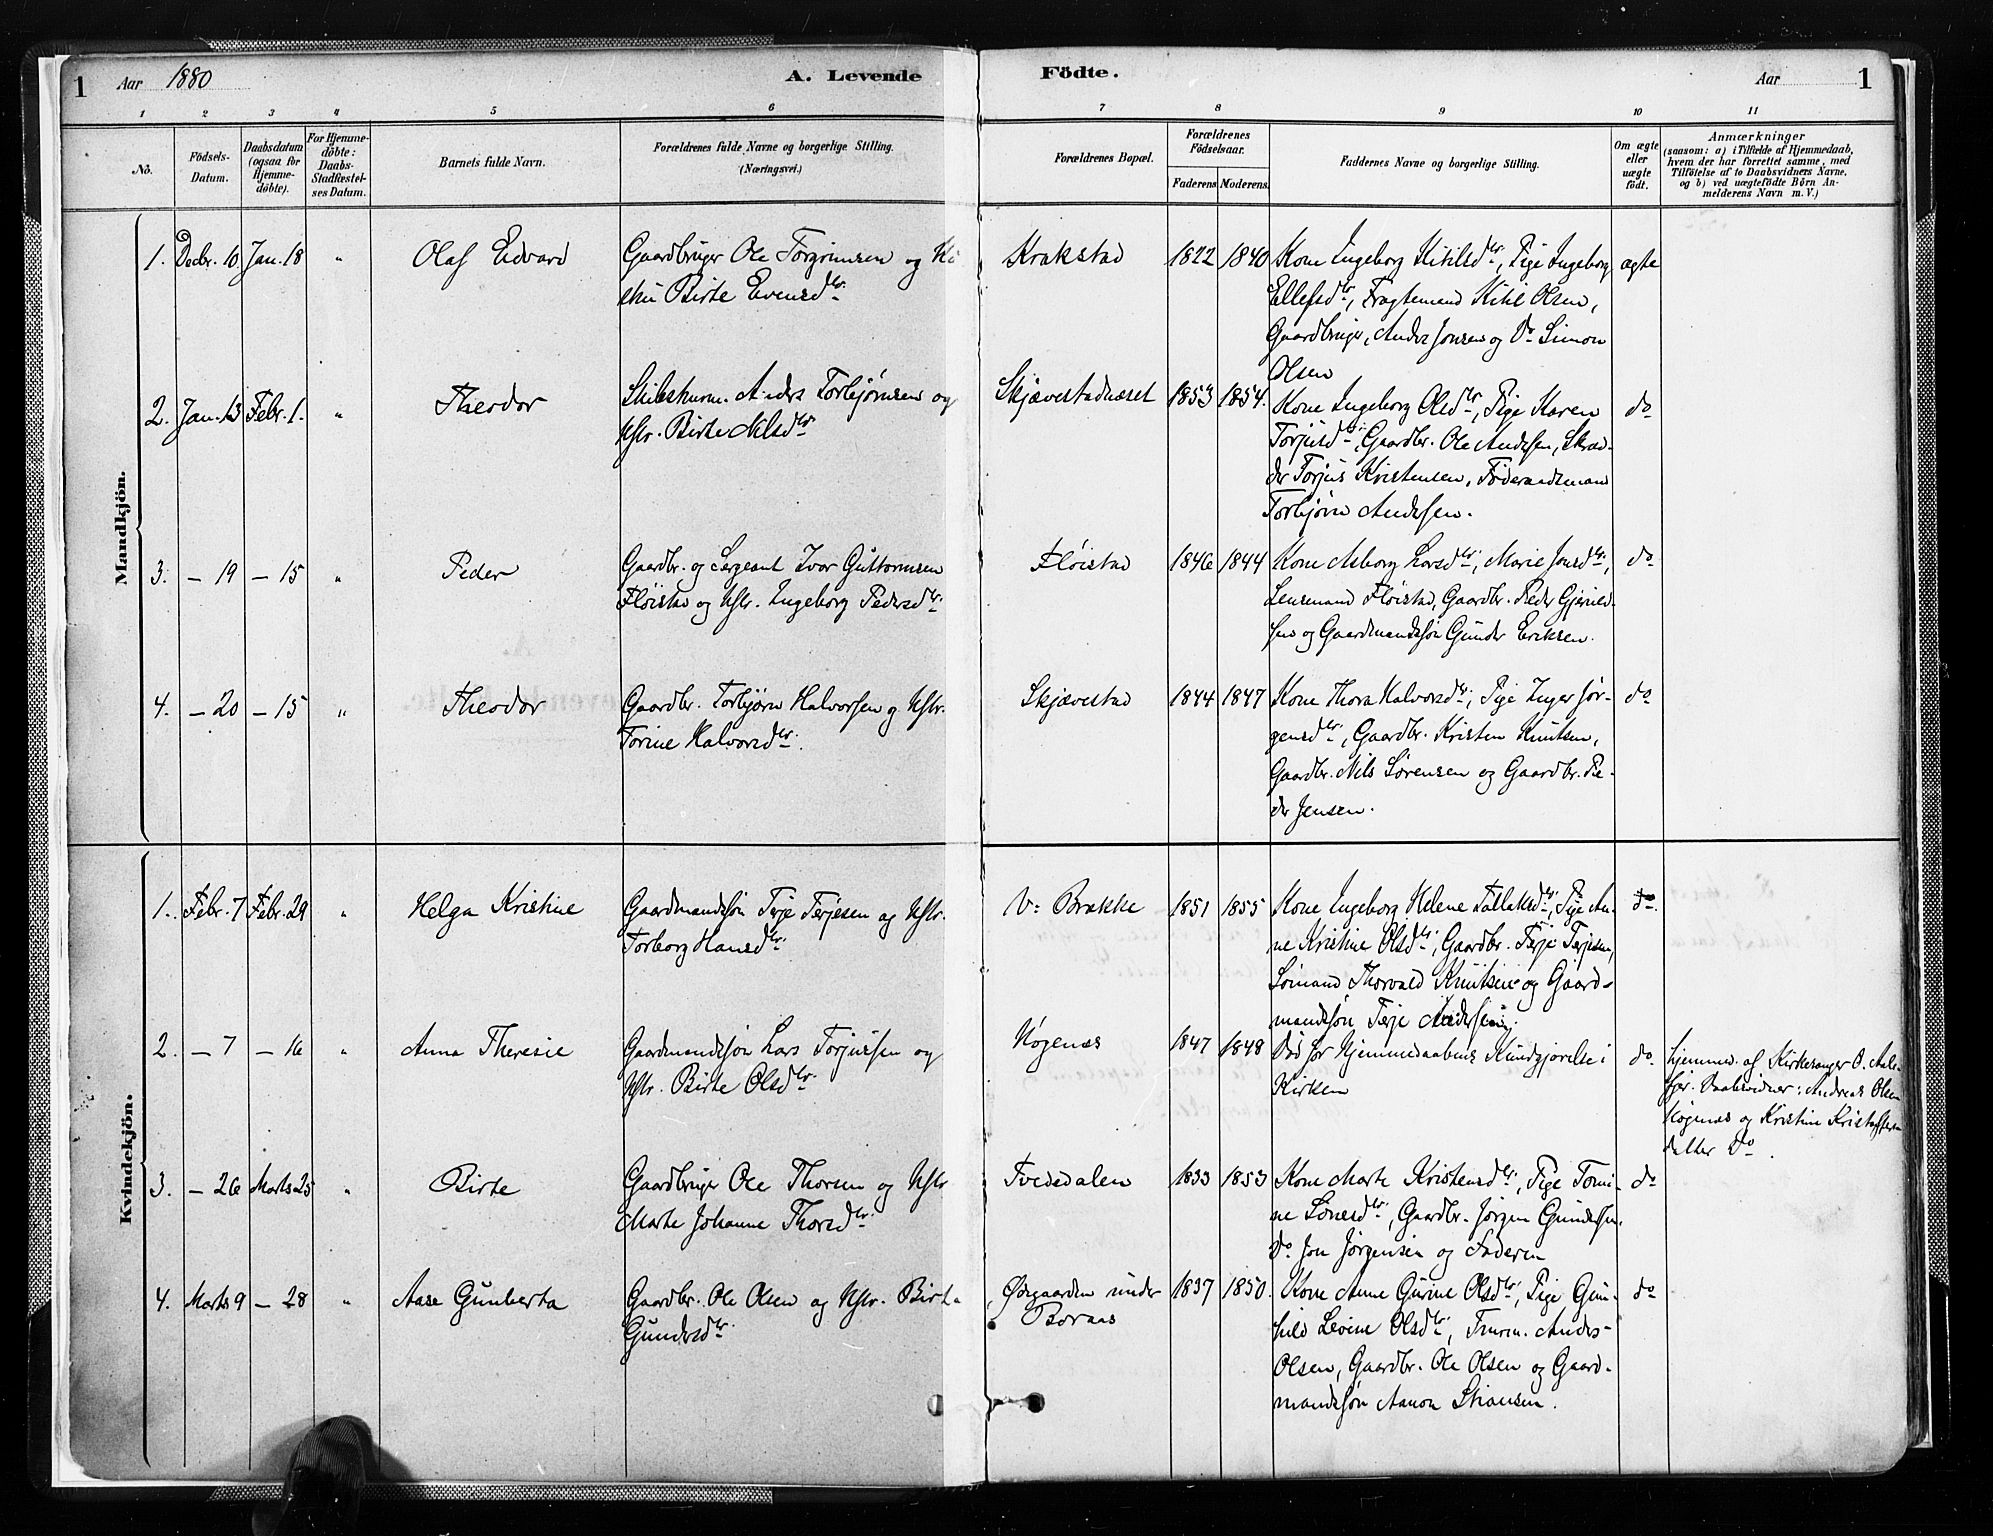 1 Aar 1880 A. Levende Födte. Aar 1
1 2 3 4 5 6 7 8 9 10 11
No.
Födsels-
Datum.
Daabsdatum
(ogsaa for
Hjemme-
döbte).
For Hjemme-
döbte:
Daabs-
Stadfæstel-
ses Datum.
Barnets fulde Navn.
Forældrenes fulde Navne og borgerlige Stilling.
(Næringsvei.)
Forældrenes Bopæl.
Forældrenes
Födselsaar.
Faderens. Moderens.
Faddernes Navne og borgerlige Stilling.
Om ægte
eller
uægte
födt.
Anmærkninger
(saasom: a) i Tilfælde af Hjemmedaab,
hvem der har forrettet samme, med
Tilföielse af to Daabsvidners Navne,
og b) ved uægtefödte Börn An-
melderens Navn m. V.)
Mandkjön.
1. Decbr. 10 Jan. 18 " Olaf Edvard
Gaardbruger Ole Torgrimsen og
Birte Evensdtr.
Krakstad 1822 1840
Kone Ingeborg Kitilsdtr, Pige Ingeborg
Ellefsdtr, Fragtemand Kitil Olsen,
Gaardbruger, Anders Jonsen og Do Simon
Olsen
ægte
2. Jan. 13 Febr. 1. " Theodor
Skibsturm. Anders Torbjørnsen og
Hstr. Birte Nilsdtr
Skjævestadnæset 1853 1854.
Kone Ingeborg Olsdtr, Pige Karen
Torjusdtr, Gaardbr. Ole Andersen, Skræd-
der Torjus Kristensen, Föderaadsmand
Torbjørn Andersen.
do
3. — 19 — 15 " Peder
Gaardbr. og Sergeant Ivar Guttormsen
Fløistad og Hstr. Ingeborg Pedersdtr.
Fløistad 1846 1844
Kone Asborg Larsdtr, Marie Jonsdtr,
Lensmand Fløistad, Gaardbr. Peder Gjeruld-
sen og Gaardmandssøn Gunder Eriksen.
do
4. — 20 — 15 " Theodor
Gaardbr. Torbjørn Halvorsen og Hstr.
Torine Halvorsdtr.
Skjævestad 1844 1847
Kone Thora Halvorsdtr, Pige Inger Jør-
gensdtr, Gaardbr. Kristen Knutsen,
Gaardbr. Nils Sørensen og Gaardbr. Pe-
der Jensen.
do
Kvindekjön.
1. Febr. 7 Febr. 29 " Helga Kristine
Gaardmandssøn Terje Terjesen og Hstr.
Torborg Hansdtr.
V: Brække 1851 1855
Kone Ingeborg Helene Tallaksdtr, Pige An-
ne Kristine Olsdtr, Gaardbr. Terje Terjesen,
Sømand Thorvald Knutsen og Gaard-
mandssøn Terje Andersen.
do.
2. — 7 — 16 " Anna Theresie
Gaardmandssøn Lars Torjussen og
Hstr. Birte Olsdtr
Høgenæs 1847 1848
Død før Hjemmedaabens Kundgjørelse i
Kirken
do.
hjemmed. af Kirkesanger O. Aale-
fjær. Daabsvidner: Andreas Olsen
Høgenæs og Kristine Kristoffers-
datter Do.
3. — 26 Marts 25 " Birte
Gaardbruger Ole Thorsen og Hstr
Marte Johanne Thorsdtr.
Tvededalen 1833 1853
Kone Marte Kristensdtr, Pige Tomi-
ne Lønesdtr, Gaardbr. Jörgen Gundersen,
Do. Jon Jørgensen og Faderen
do
4. Marts 9 — 28 " Aase Gunberta
Gaardbr. Ole Olsen og Hstr. Birte
Gundersdtr.
Ørgaarden under
Boraas
1837 1850.
Kone Anne Gurine Olsdtr, Pige Gun-
hild Levine Olsdtr, Anders
Olsen, Gaardbr. Ole Olsen og Gaard-
mandssøn Aanon
do